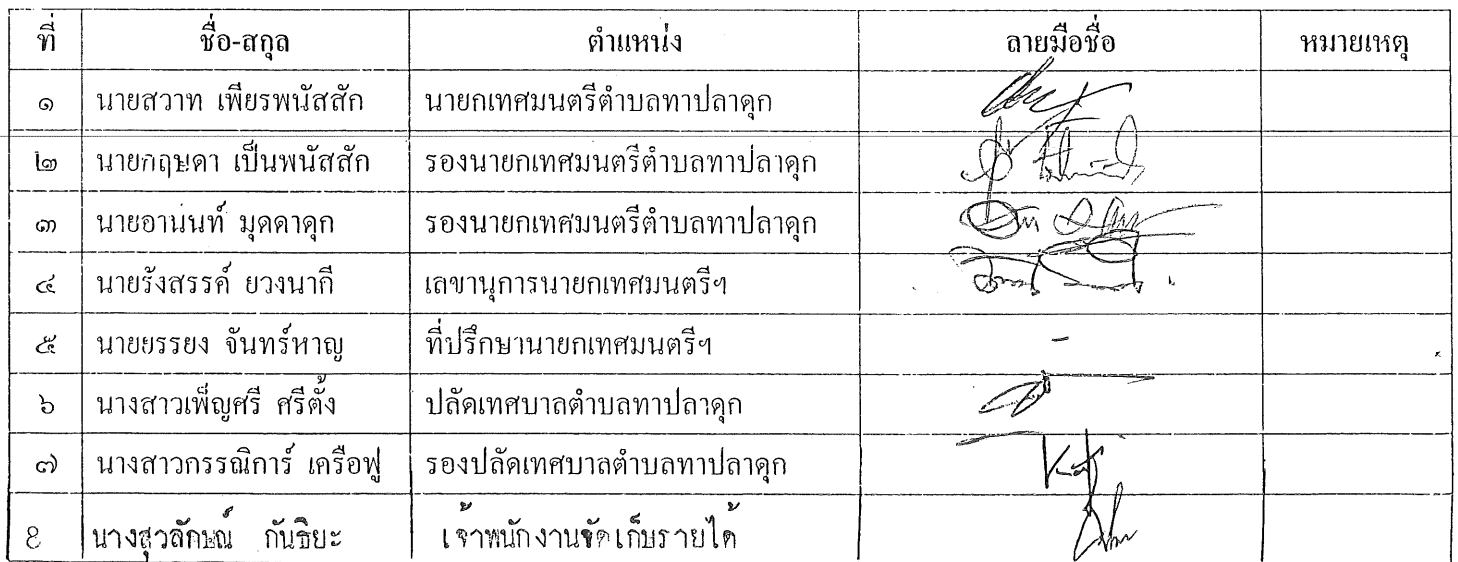 ที่ ชื่อ-สกุล ตำแหน่ง ลายมือชื่อ หมายเหตุ
๑ นายสวาท เพียรพนัสสัก นายกเทศมนตรีตำบลทาปลาดุก
๒ นายกฤษดา เป็นพนัสสัก รองนายกเทศมนตรีตำบลทาปลาดุก
๓ นายอานนท์ มุดดาดุก รองนายกเทศมนตรีตำบลทาปลาดุก
๔ นายรังสรรค์ ยวงนาคี เลขานุการนายกเทศมนตรีฯ
๕ นายยรรยง จันทร์หาญ ที่ปรึกษานายกเทศมนตรีฯ -
๖ นางสาวเพ็ญศรี ศรีตั้ง ปลัดเทศบาลตำบลทาปลาดุก
๗ นางสาวกรรณิการ์ เครือฟู รองปลัดเทศบาลตำบลทาปลาดุก
๘ นางสุวลักษณ์ กันธิยะ เจ้าพนักงานจัดเก็บรายได้